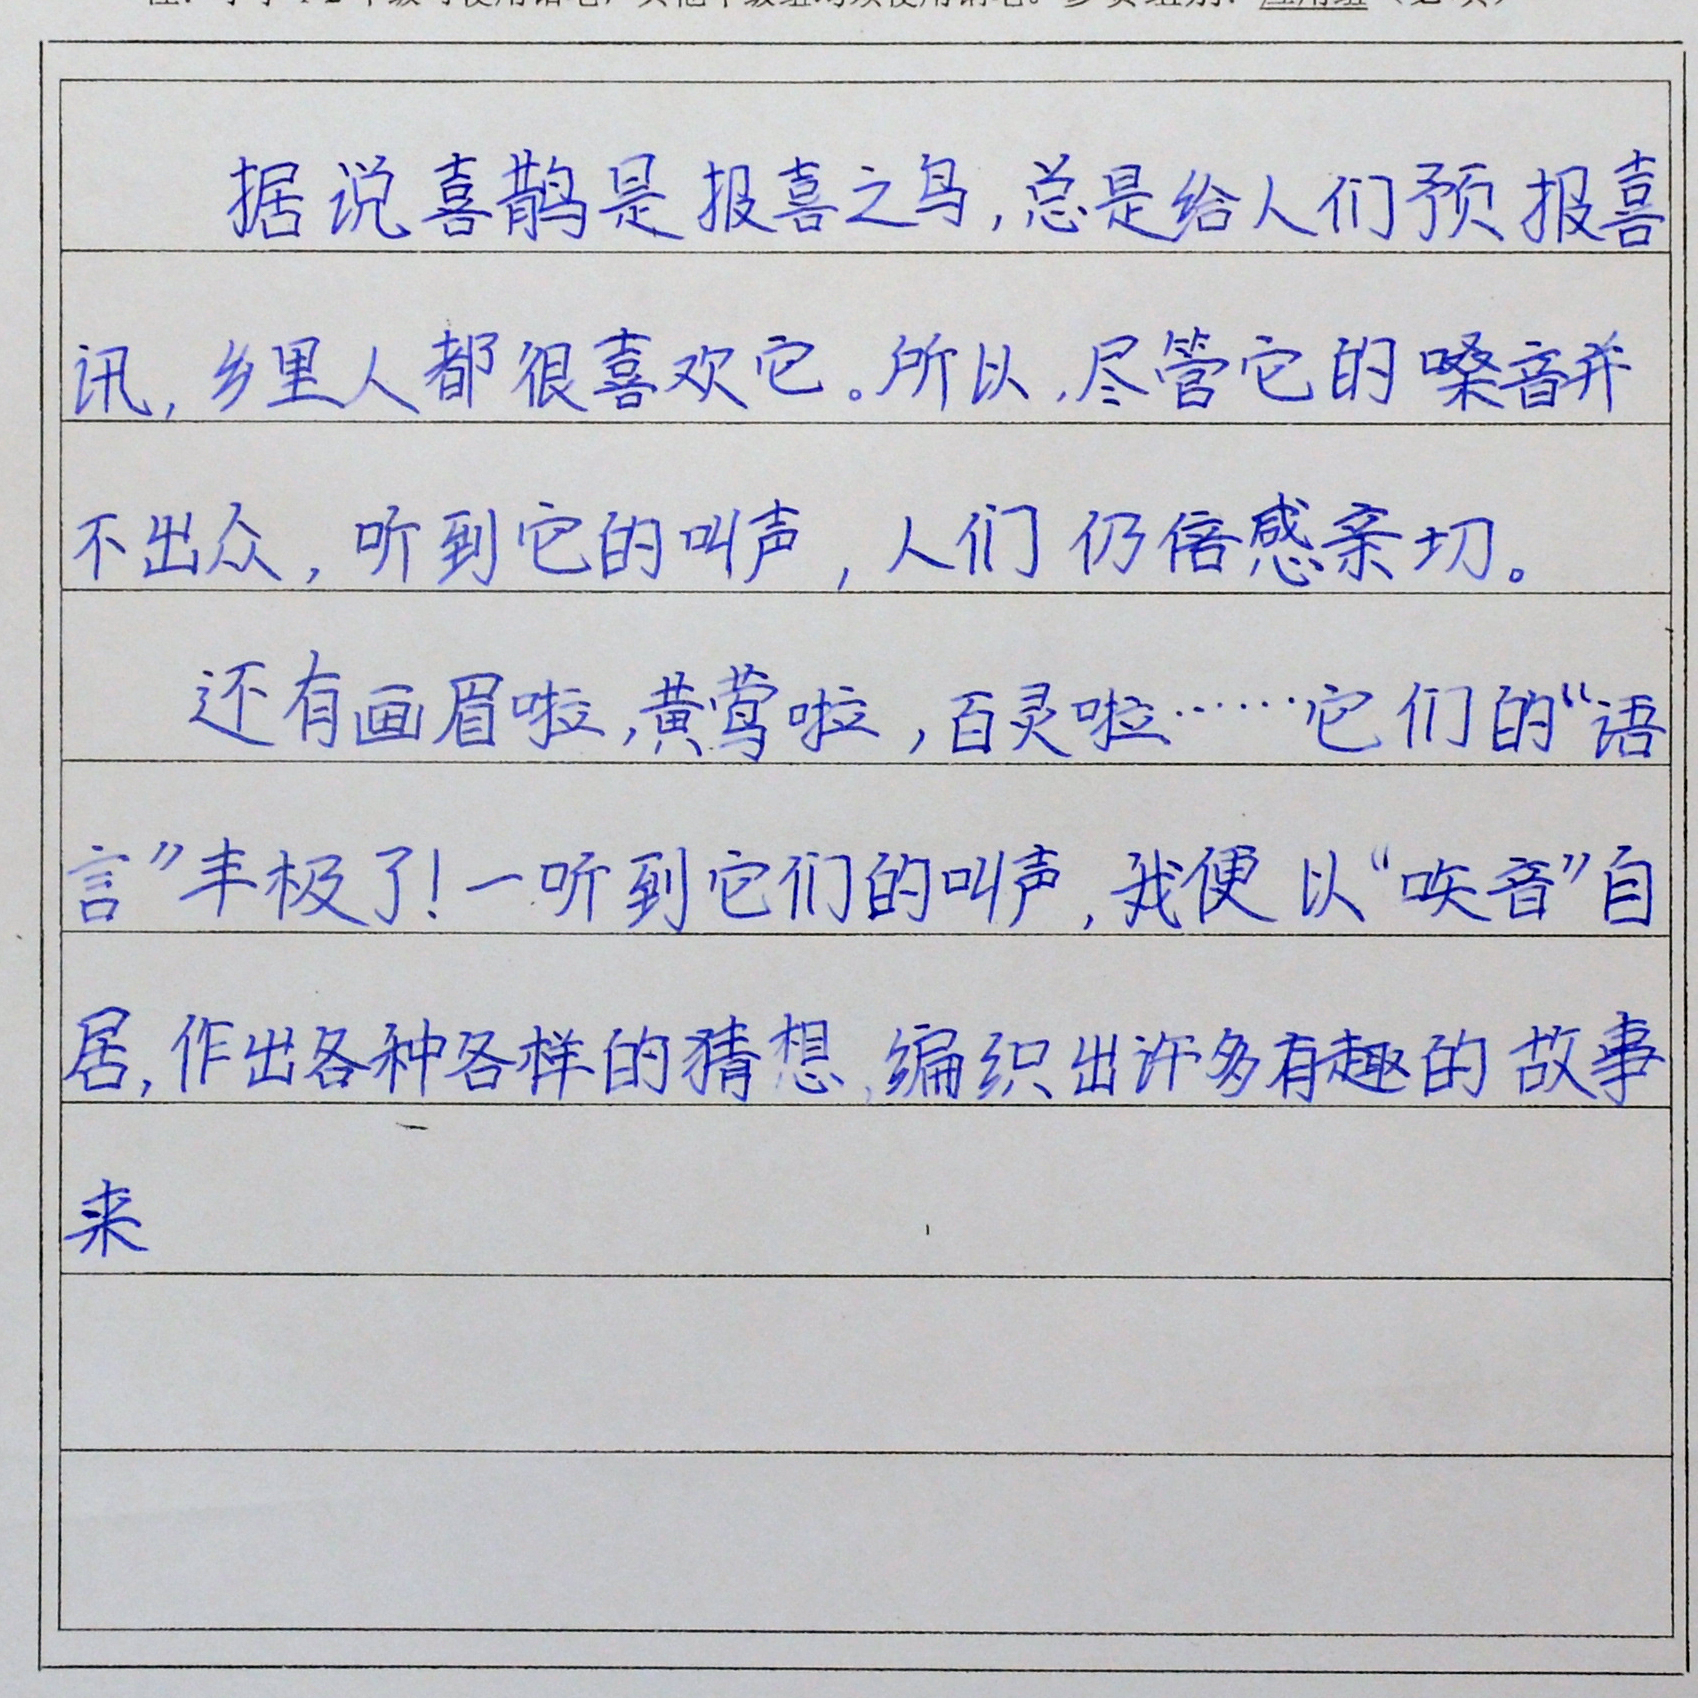 据说喜鹊是报喜之鸟,总是给人们预报喜
讯,乡里人都很喜欢它。所以,尽管它的嗓音并
不出众,听到它的叫声,人们仍倍感亲切。
还有画眉啦,黄莺啦,百灵啦……它们的“语
言”丰极了!一听到它们的叫声,我便以“唉音”自
居,作出各种各样的猜想,编织出许多有趣的故事
来